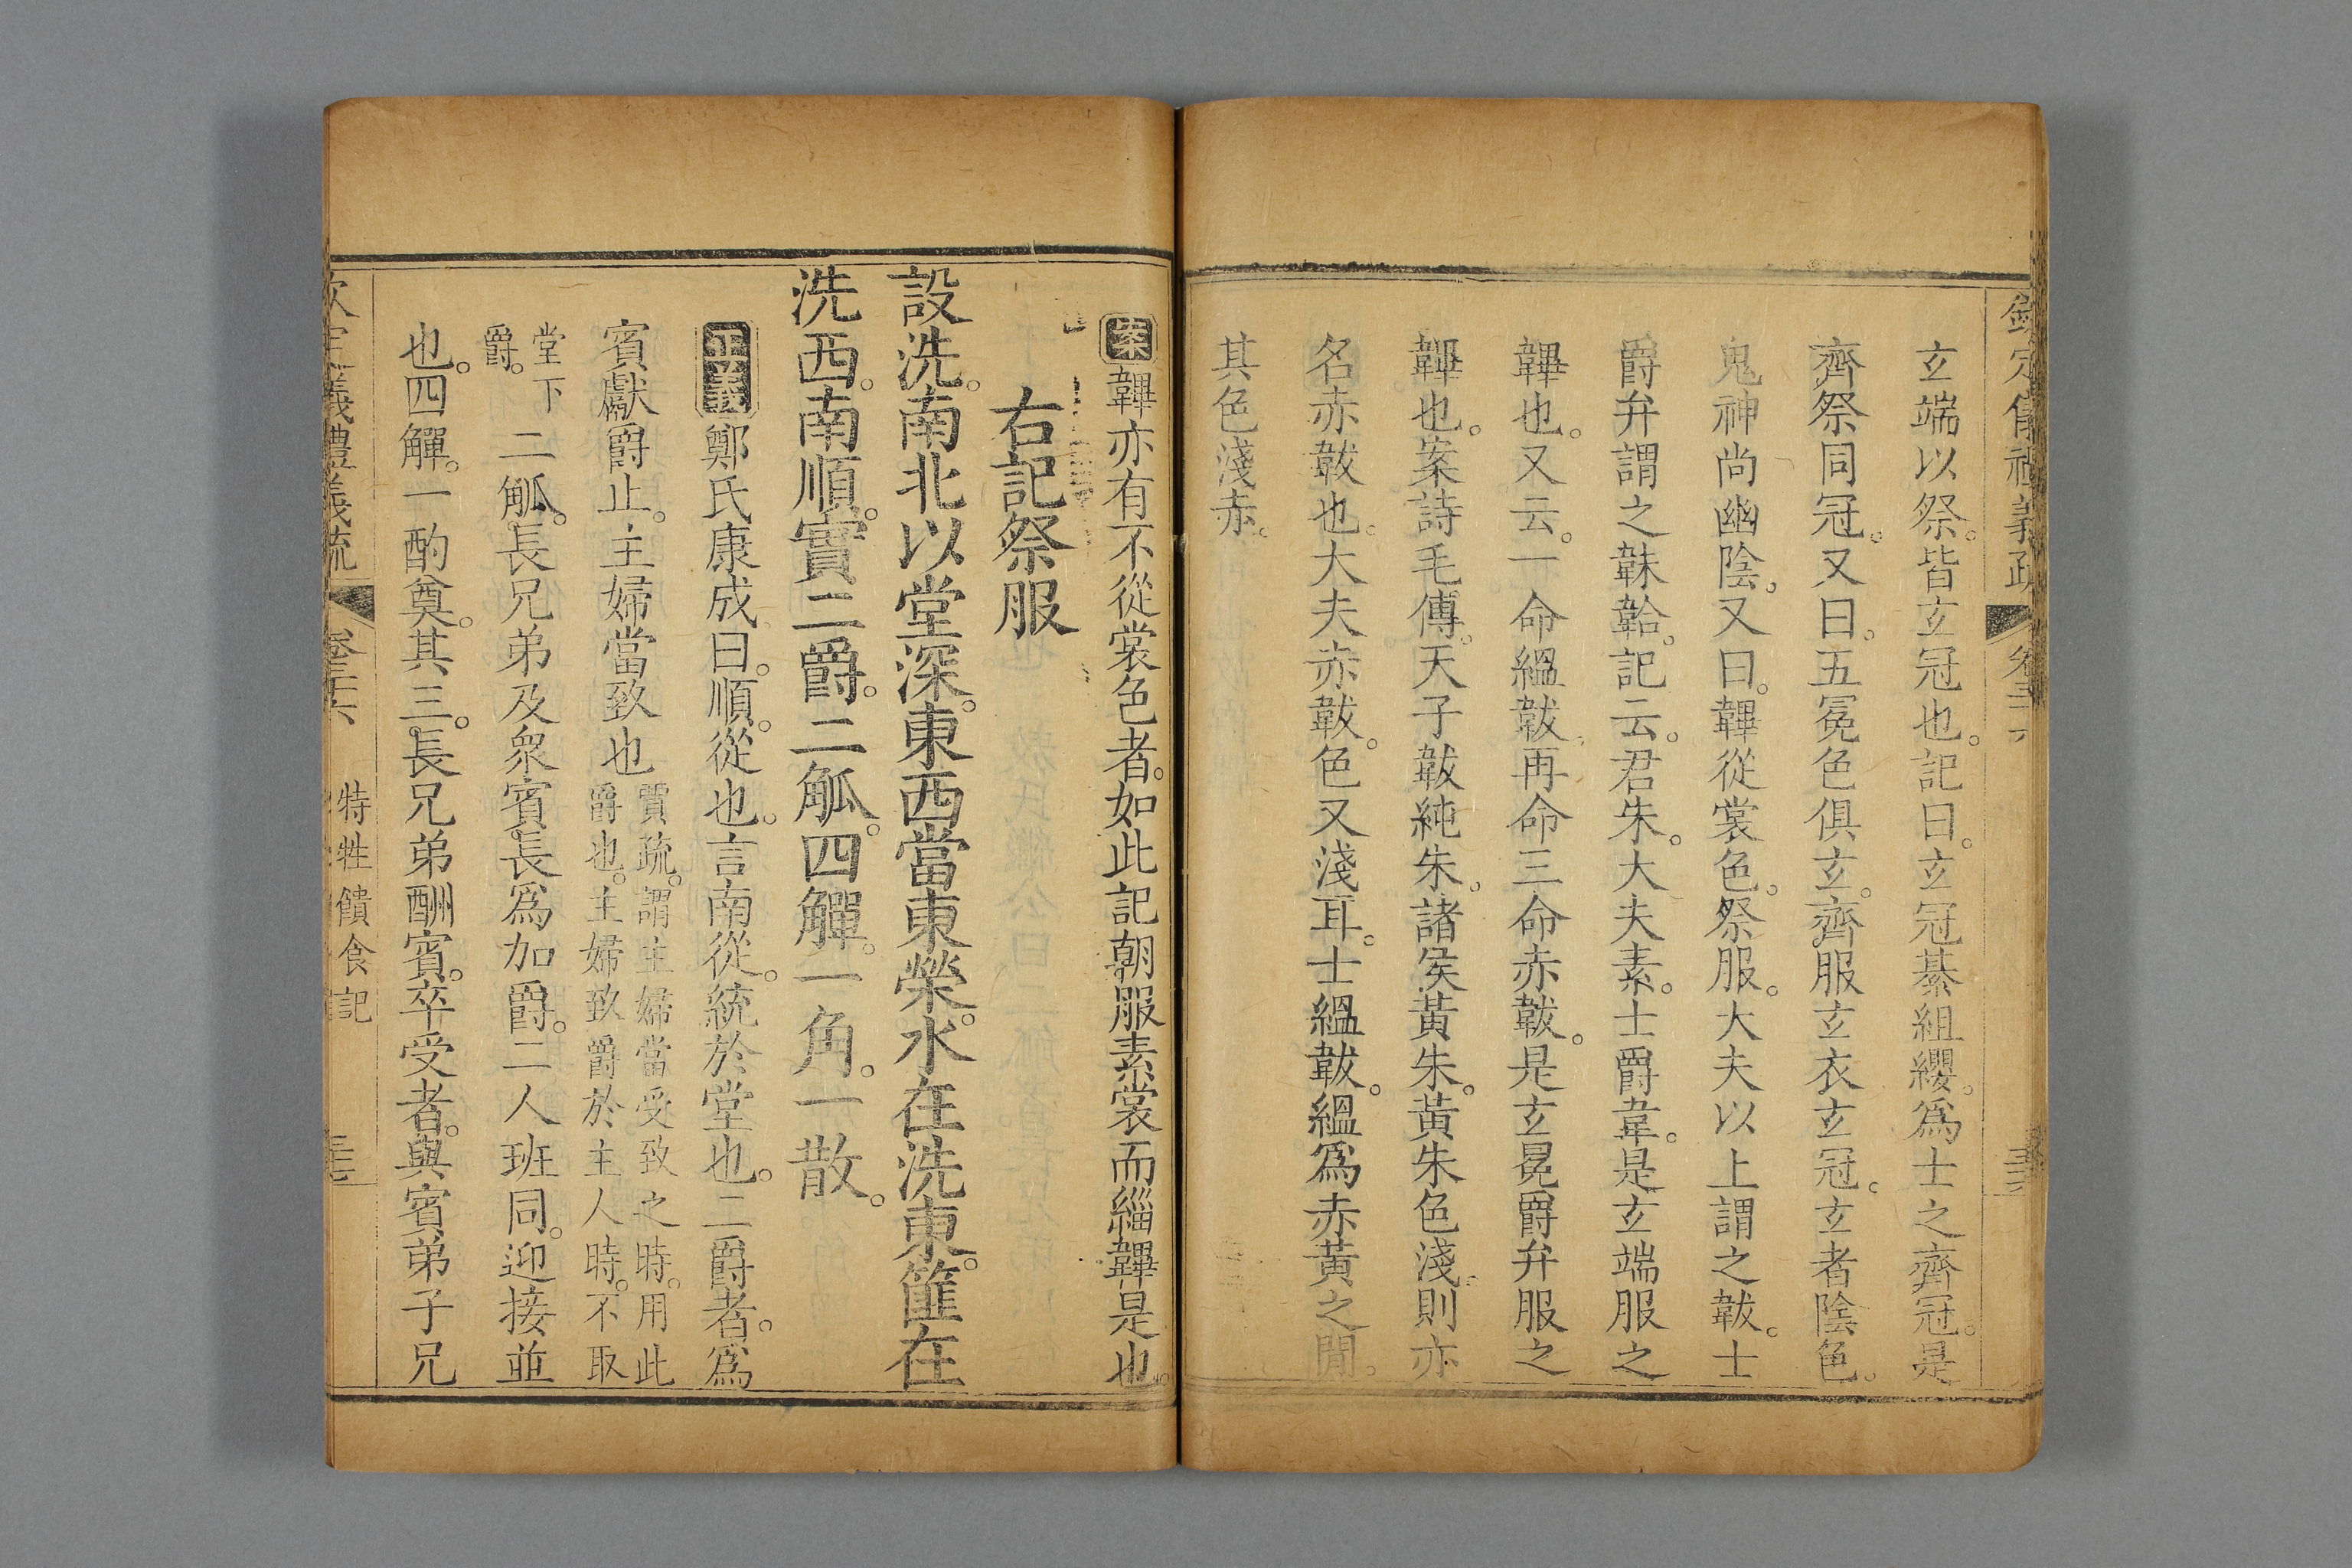 欽定儀禮義疏 卷三十六 三六
玄端以祭。皆玄冠也。記曰。玄冠綦組纓。爲士之齊冠。是
齊祭同冠。又曰。五冕色俱玄。齊服玄衣玄冠。玄者陰色。
鬼神尚幽陰。又曰。韠從裳色。祭服。大夫以上謂之韍。士
爵弁謂之韎韐。記云。君朱。大夫素。士爵韋。是玄端服之
韠也。又云。一命縕韍。再命三命赤韍。是玄冕爵弁服之
韠也。案詩毛傳。天子韍純朱。諸侯黃朱。黃朱色淺。則亦
名赤韍也。大夫赤韍。色又淺耳。士縕韍。縕爲赤黃之閒。
其色淺赤。
案韠亦有不從裳色者。如此記朝服素裳而緇韠是也。
右記祭服
設洗。南北以堂深。東西當東榮。水在洗東。篚在
洗西。南順。實二爵。二觚。四觶。一角。一散。
正義鄭氏康成曰。順。從也。言南從。統於堂也。二爵者。爲
賓獻爵止。主婦當致也
賈疏。謂主婦當受致之時。用此
爵也。主婦致爵於主人時。不取
堂下
爵。
二觚。長兄弟及衆賓長爲加爵。二人班同。迎接並
也。四觶。一酌奠。其三。長兄弟酬賓。卒受者。與賓弟子兄
欽定儀禮義疏 卷三十六 特牲饋食記 三七